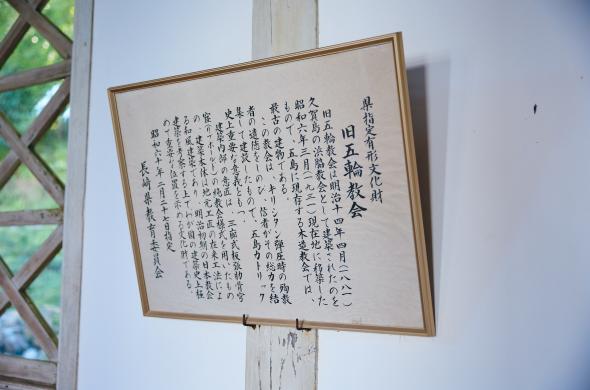 県指定有形文化財
旧五輪教会
旧五輪教会は明治十四年四月(一八八一)
久賀島の浜脇教会として建築されたのを
昭和六年三月(一九三一)現在地に移築した
もので、五島に現存する木造教会では、
最古の建物である。
この教会は、キリシタン弾圧時の殉教
者の遺徳をしのび、信者がその総力を結
集して建設したもので、五島カトリック
史上重要な意義をもつ。
建築内部の意匠は、三廊式板張肋骨穹
窿リブボールトの純教会様式を用いたもの
の、建築本体は地元工匠の在来工法によ
る和風建築であり、明治初期の日本教会
建築を考察する上で、わが国の建築史上極
めて重要な位置を示める文化財である。
昭和六十年二月二十七日指定
長崎県教育委員会